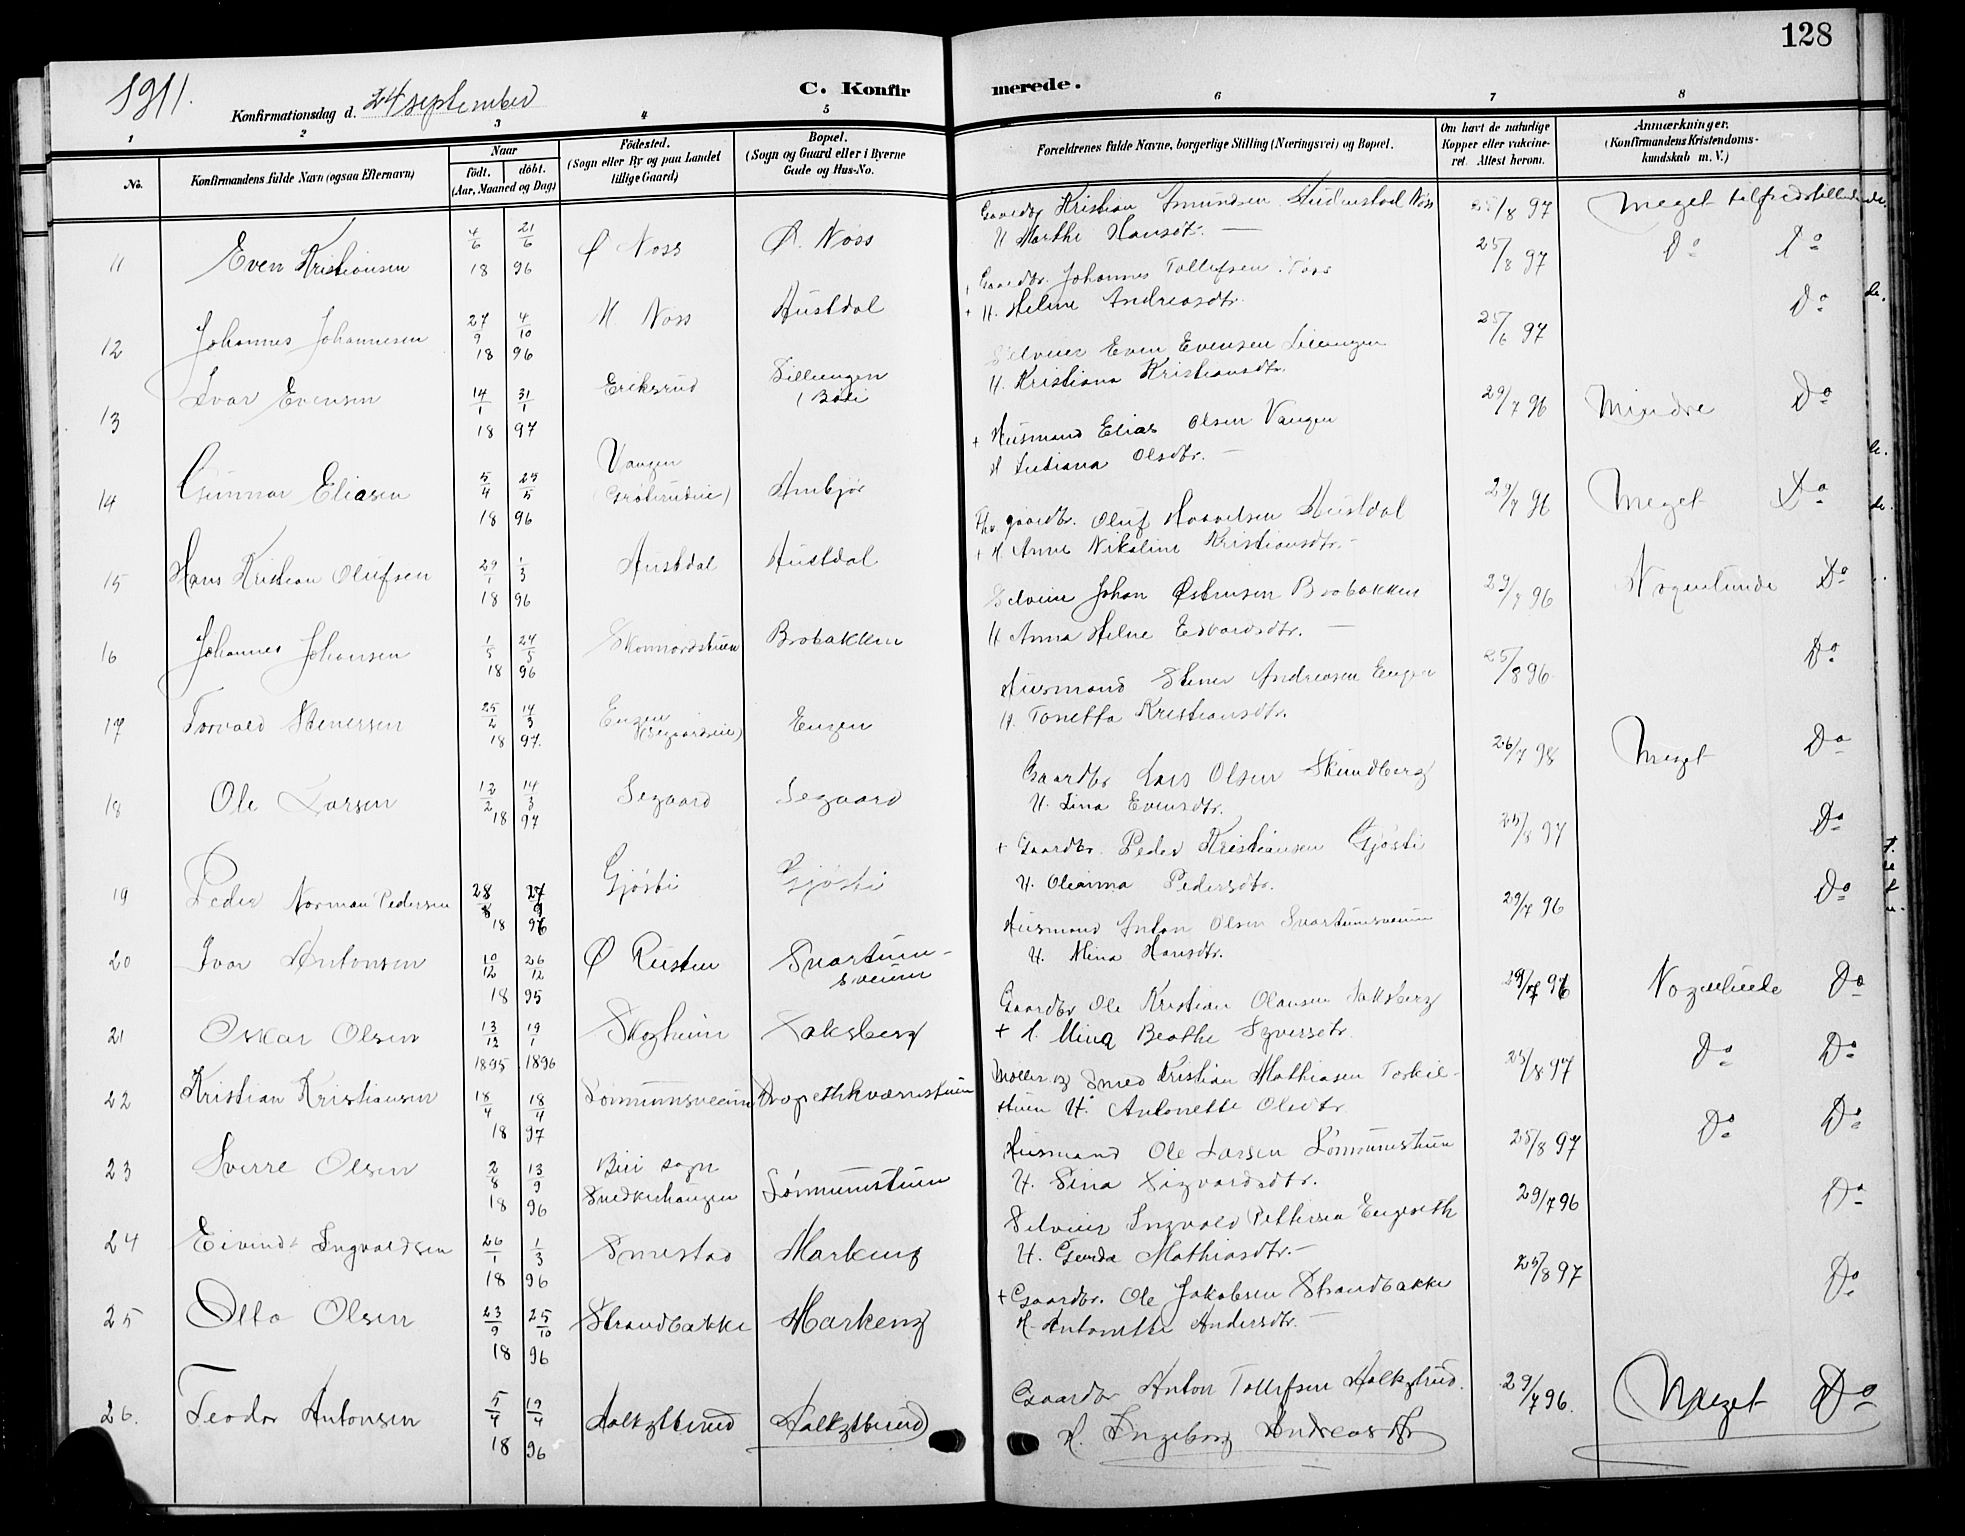 128
1911.
Konfirmationsdag d. 24 september
C. Konfirmerede.
1 2 3 4 5 6 7 8
No.
Konfirmandens fulde Navn (ogsaa Efternavn)
Naar
födt. döbt.
(Aar, Maaned og Dag)
Födested.
(Sogn eller By og paa Landet
tillige Gaard)
Bopæl.
(Sogn og Gaard eller i Byerne
Gade og Hus-No.
Forældrenes fulde Navne, borgerlige Stilling (Næringsvei) og Bopæl.
Om havt de naturlige
Kopper eller vaccineret. Attest herom.
Anmærkninger.
(Konfirmandens Kristendoms-
kundskab m. V.)
11 Even Kristiansen 4/6 21/6 1896 Ø Noss Ø. Noss Gaardbr Kristian Amundsen Noss 25/8 97 Meget tilfredsstillende.
H Marthe Hansdt.
12 Johannes Johannesen 27/9 4/10 1896 N. Noss Austdal Gaardbr. Johannes Tollefsen Noss 25/8 97 Do Do
+ H. Helene Andreasdtr.
13 Ivar Evensen 14/1 31/1 1897 Eriksrud Sillungen Selveier Even Evensen 25/6 97 Do
H. Kristiana Kristiansdtr.
14 Gunnar Eliasen 5/4 25/5 1896 Vangen Ambjør + Husmand Elias Olsen Vangen 29/7 96 Mindre Do
H Olsdtr.
15 Hans Kristian Olufsen 29/1 1/3 1896 Austdal Austdal gaardbr. Oluf Austdal 29/7 96 Meget Do
+ H. Anne Nikoline Kristiansdtr.
16 Johannes Johansen 1/5 24/5 1896 Brobakken Selveier Johan Østensen Brobakken 29/7 96 Nogenlunde Do
H Anna Helne Edvardsdtr.
17 Torvald Stenersen 25/2 14/3 1897. Engen Engen Husmand Stener Andreasen Engen 25/8 96 Do
H. Tonetta Kristiansdtr.
18 Ole Larsen 13/2 14/3 1897 Segaard Segaard Gaardbr Lars Olsen Skundberg 26/7 98 Meget Do
H. Lina Evensdtr.
19 Peder Norman Pedersen 28/8 27/9 1896 Gjøsti Gjøsti + Gaardbr. Peder Kristiansen Gjøsti 25/8 97 Do
H. Oleanna Pedersdtr.
20 Ivar Antonsen 10/12 26/12 1895 Ø Rusten Svartumsveum Husmand Anton Olsen Svartumsveum 29/7 96 Do
H. Mina Hansdtr.
21 Oskar Olsen 13/12 19/1 1895 1896 Skogheim Saksberg Gaardbr Ole Kristian Olausen Saksberg 29/7 96 Nogenlunde Do
+ H. Mina Beathe
22 Kristian Kristiansen 18/4 18/4 1897 Møller og Smed Kristian Mathiasen Torkil- 25/8 97 Do Do
stuen H. Antonette Olsdtr.
23 Sverre Olsen 2/8 13/9 1896 Biri sogn Snedkerhaugen Sønnumstuen Husmand Ole Larsen Sønnumstuen 25/8 97 Do Do
H. Sina Sigvardsdtr.
24 Eivind Ingvaldsen 26/1 1/3 1896 Smestad Markeng Selveier Ingvald Pettersen 29/7 96 Do
H. Gerda Mathiasdtr.
25 Otto Olsen 23/9 25/10 1896 Strandbakke Markeng + Gaardbr. Ole Jakobsen Strandbakke 25/8 97 Do
H. Antonette Andersdtr.
26. Teodor Antonsen 5/4 19/4 1896 Gaardbr Anton Tollefsen 29/7 96. Meget Do
H. Ingeborg Andreasdtr